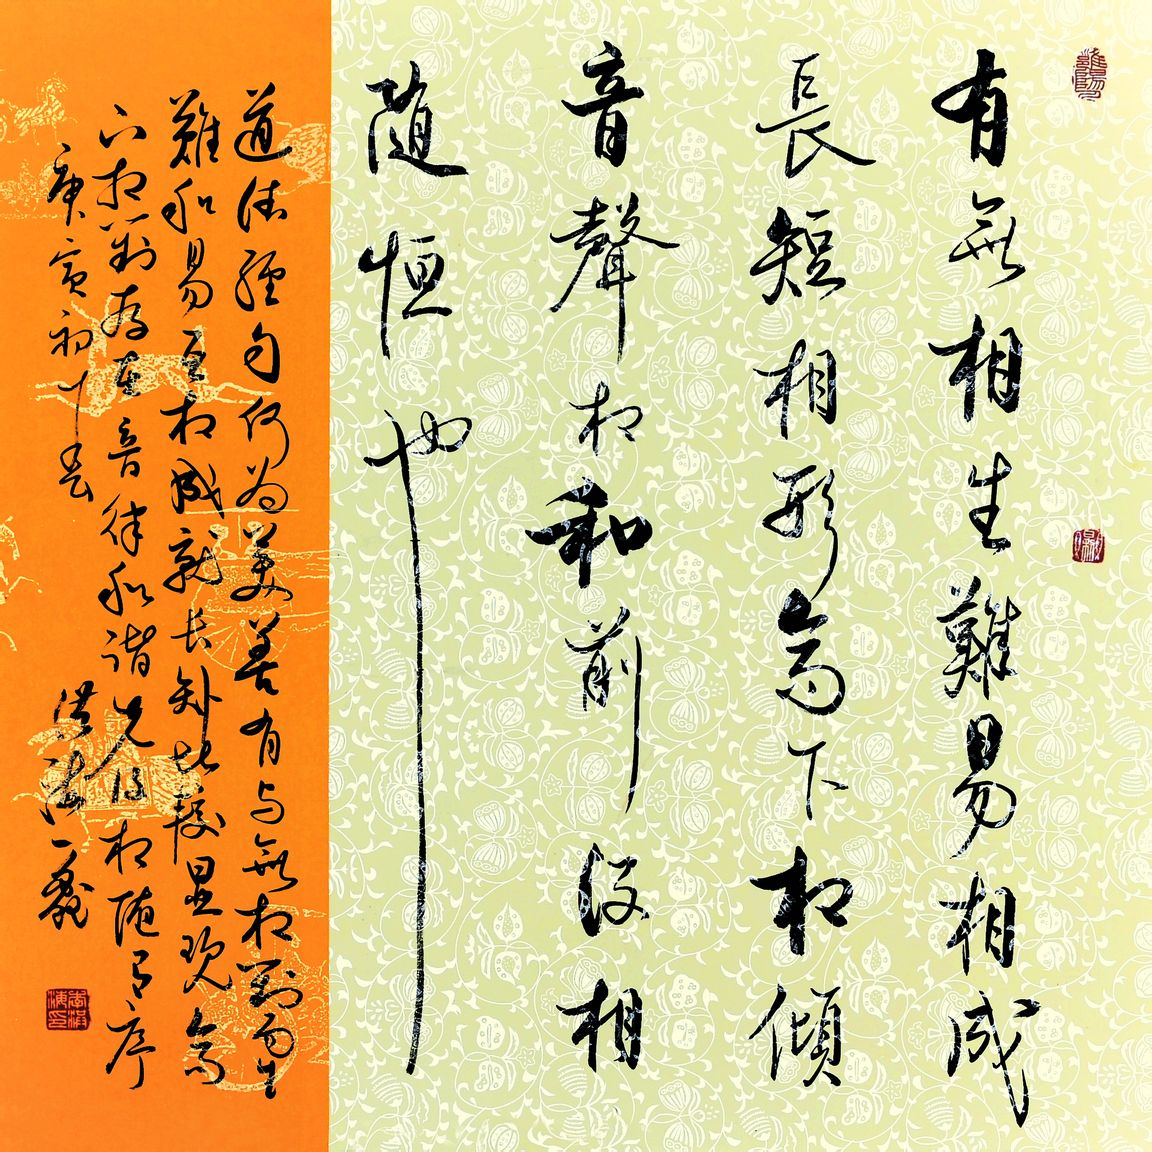 有無相生難易相成
長短相形高下相傾
音聲相和前後相
隨恒也
道德經句何为美善有与無相對而生
難和易互相成就长短比較显現高
下相對存在音律和谐先後相随有序
庚寅初十春
洪涛一戲